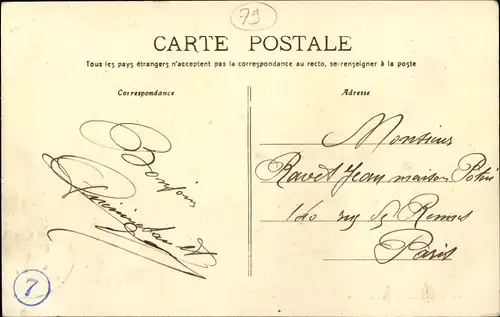 79
CARTE POSTALE
Tous les pays étrangers n'acceptent pas la correspondance au recto, se renseigner à la poste
Correspondance
Adresse
Bonjour
Monsieur
Ravet Jean maison Potin
140 rue de Rennes
Paris
7